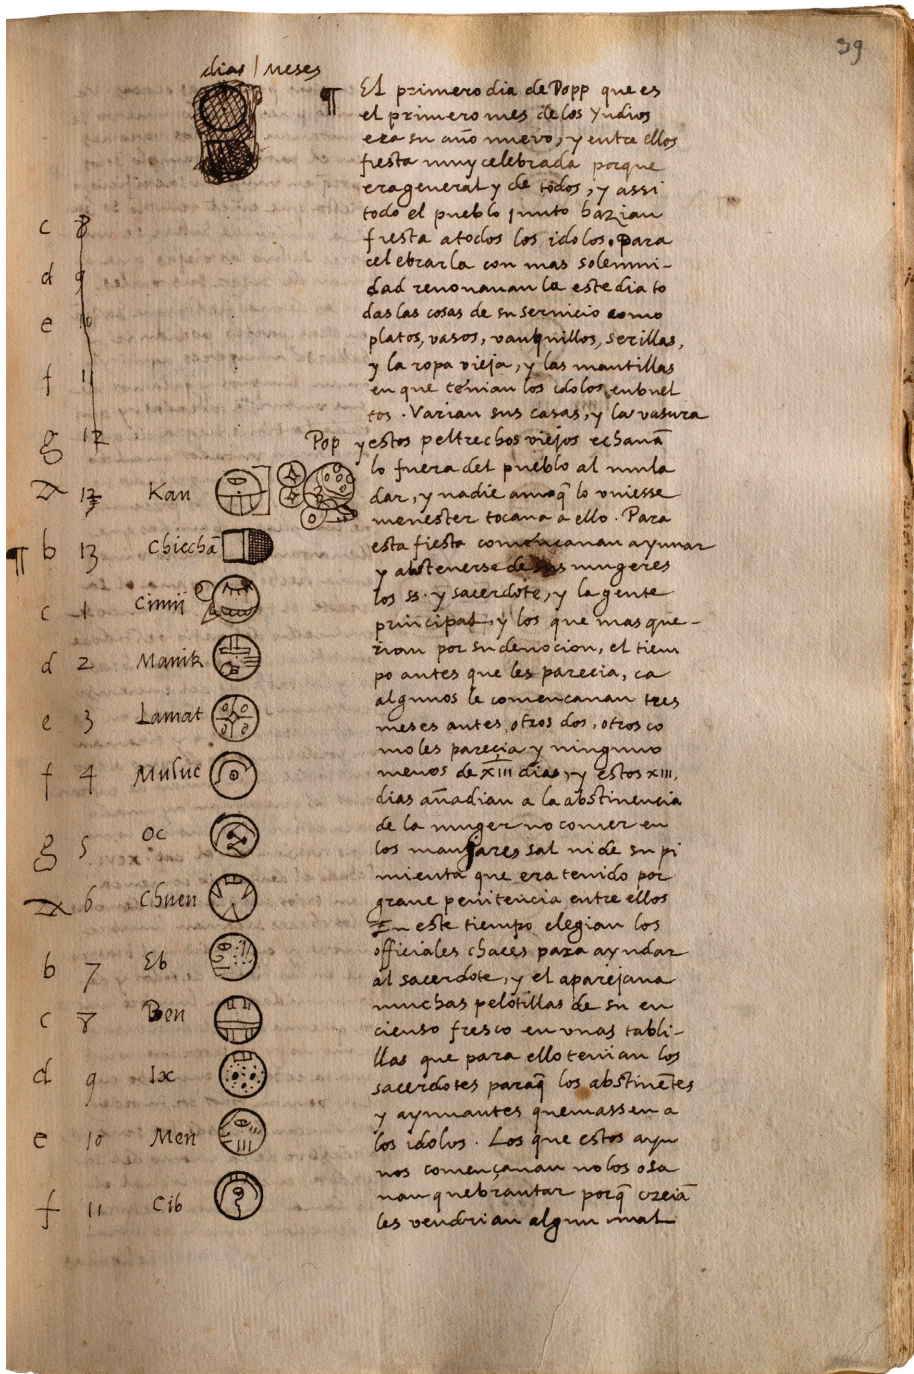 39
dias / meses
¶ El primero dia de Popp que es
el primero mes de los Yndios
era su año nuevo, y entre ellos
fiesta muy celebrada porque
era general y de todos, y assi
todo el pueblo junto hazian
fiesta a todos los idolos. Para
celebrarla con mas solemni-
dad renovavan la este dia to
das las cosas de su servicio como
platos, vasos, vanquillos, serillas,
y la ropa vieja, y las mantillas
en que tenian los idolos enbuel
tos. Varian sus casas, y la vasura
y estos peltrechos viejos echavā
lo fuera del pueblo al mula
dar, y nadie amaq̄ lo uviesse
menester tocava a ello. Para
esta fiesta començavan ayunar
y abstenerse de sus mugeres
los ss. y sacerdote, y la gente
principal, y los que mas que-
rian por su devocion, el tiem
po antes que les parecia, ca
algunos le comencavan tres
meses antes, otros dos, otros co
mo les parecia y ninguno
menos de XIII dias, y estos XIII,
dias añadian a la abstinencia
de la muger no comer en
los manjares sal ni de su pi
mienta que era tenido por
grave penitencia entre ellos
En este tiempo elegian los
officiales chaces para ayudar
al sacerdote, y el aparejava
muchas pelotillas de su en
cienso fresco en unas tabli-
llas que para ello tenian los
sacerdotes paraq̄ los abstinētes
y ayunantes quemassen a
los idolos. Los que estos ayu
nos començavan no los osa
van quebrantar porq̄ creiā
les vendrian algun mal
c 8
d 9
e 10
f 11
g 12
Pop
12 Kan
¶ b 13 Chicchā
c 1 Cimij
d 2 Manik
e 3 Lamat
f 4 Muluc
g 5 Oc
6 Chuen
b 7 Eb
c 8 Ben
d 9 Ix
e 10 Men
f 11 Cib